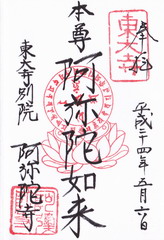 奉拝
平成二十四年五月六日
本尊
阿弥陀如来
東大寺別院
阿弥陀寺
東大寺